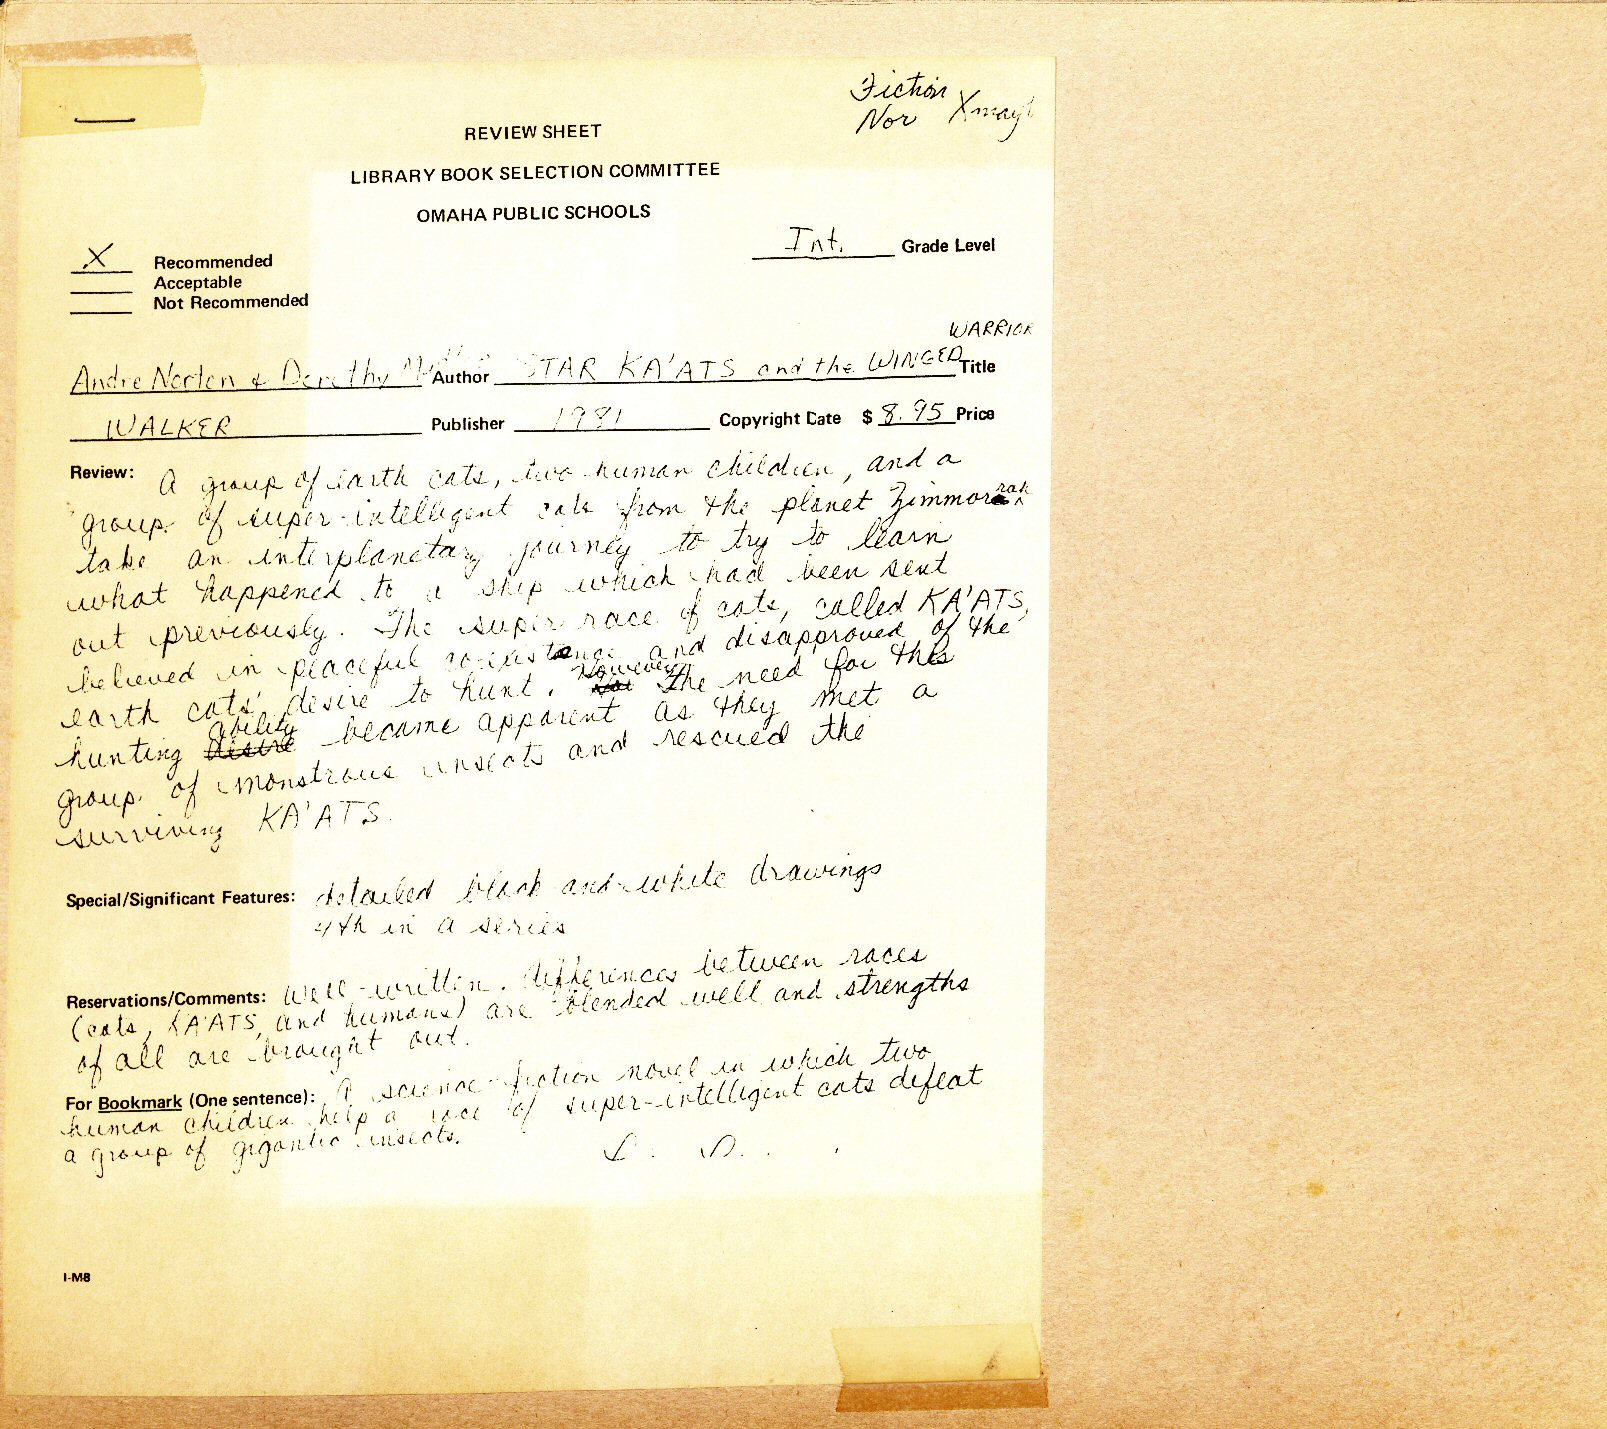 Fiction
Nor Xmay
REVIEW SHEET
LIBRARY BOOK SELECTION COMMITTEE
OMAHA PUBLIC SCHOOLS
Int. Grade Level
X Recommended
Acceptable
Not Recommended
WARRIOR
Andre Norton & Dorothy Author STAR KA'ATS and the WINGED Title
WALKER Publisher 1981 Copyright Date $ 8.95 Price
Review: A group of earth cats, two human children, and a
group of super-intelligent cats from the planet Zimmorrah
take an interplanetary journey to try to learn
what happened to a ship which had been sent
out previously. The super race of cats, called KA'ATS,
believed in peaceful co-existence and disapproved of the
earth cats' desire to hunt. However The need for this
hunting desire ability became apparent as they met a
group of monstrous insects and rescued the
surviving KA'ATS.
Special/Significant Features: detailed black-and-white drawings
4th in a series
Reservations/Comments: Well-written. Differences between races
(cats, KA'ATS, and humans) are blended well and strengths
of all are brought out.
For Bookmark (One sentence): A science-fiction novel in which two
human children help a race of super-intelligent cats defeat
a group of gigantic insects.
I-M8